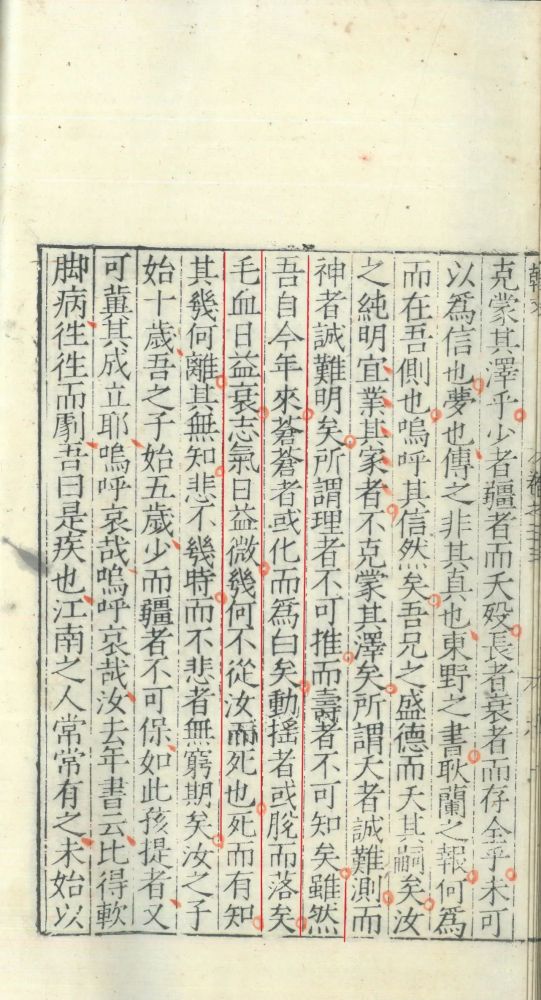 克蒙其澤乎少者疆者而夭歿長者衰者而存全乎未可
以爲信也夢也傳之非其真也東野之書耿蘭之報何爲
而在吾側也嗚呼其信然矣吾兄之盛德而夭其嗣矣汝
之純明宜業其家者不克蒙其澤矣所謂天者誠難測而
神者誠難明矣所謂理者不可推而壽者不可知矣雖然
吾自今年來蒼蒼者或化而爲白矣動搖者或脫而落矣
毛血日益衰志氣日益微幾何不從汝而死也死而有知
其幾何離其無知悲不幾時而不悲者無窮期矣汝之子
始十歲吾之子始五歲少而疆者不可保如此孩提者又
可冀其成立耶嗚呼哀哉嗚呼哀哉汝去年書云比得軟
脚病徃徃而劇吾曰是疾也江南之人常常有之未始以